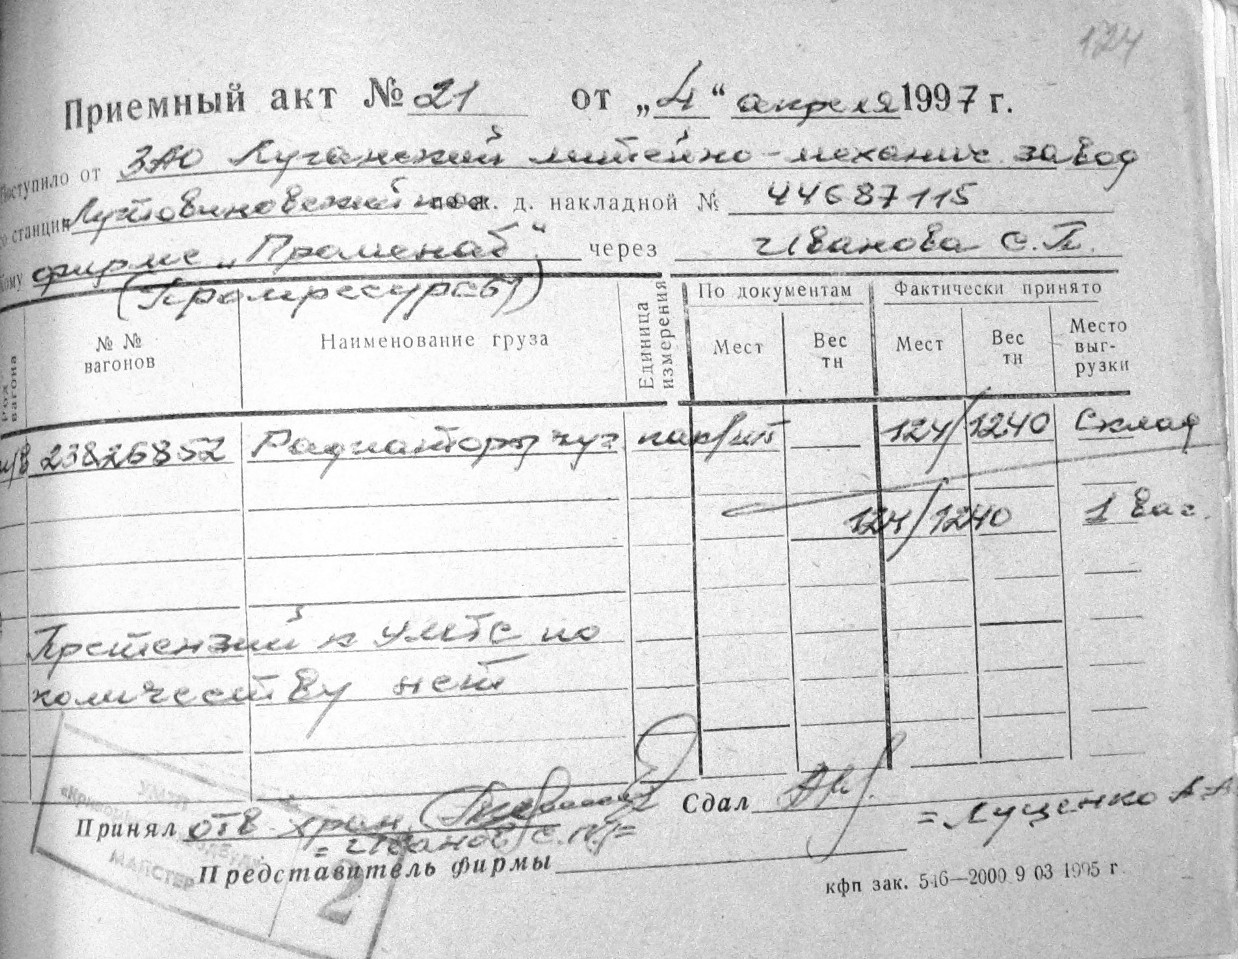 124
Приемный акт № 21 от „4“ апреля 1997 г.
Поступило от ЗАО Луганский литейно-механич. завод
со станции Лутовиновский по ж. д. накладной № 44687115
Кому фирме „Променаб“ через Иванова С.П.
(Промресурсы)
Род вагона
№ № вагонов
Наименование груза
Единица измерения
По документам
Фактически принято
Мест
Вес тн
Мест
Вес тн
Место выг-рузки
п/в 23826852 Радиаторы чуг пак/шт 124/1240 Склад
124/1240 1 ваг.
Претензий к УМТС по
количеству нет
Сдал
= Лущенко А.А.
Принял отв хран.
= Иванов С.П. =
Представитель фирмы
МАЙСТЕР
2
кфп зак. 546—2000 9 03 1995 г